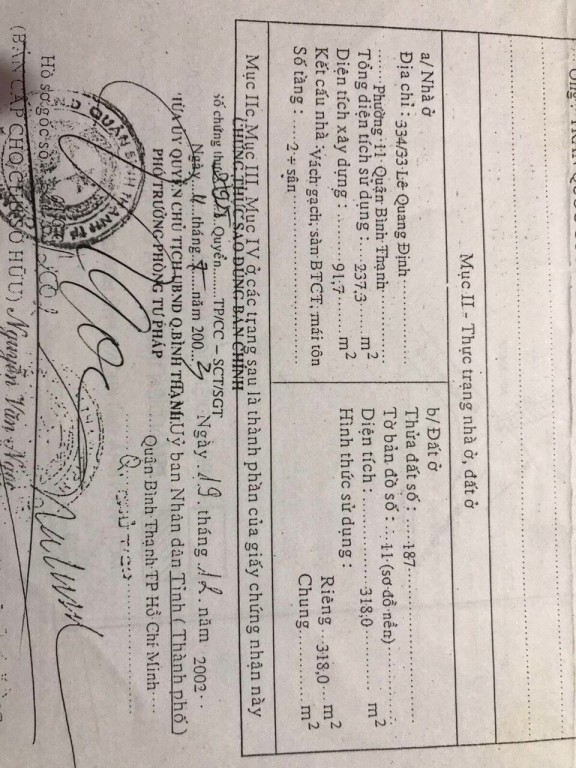 Mục II - Thực trạng nhà ở, đất ở
a/ Nhà ở
Địa chỉ : 334/33 Lê Quang Định
Phường 11 Quận Bình Thạnh
Tổng diện tích sử dụng : 237,3 m2
Diện tích xây dựng : 91,7 m2
Kết cấu nhà : Vách gạch, sàn BTCT, mái tôn
Số tầng : 2 + sân
b/ Đất ở
Thửa đất số : 187
Tờ bản đồ số : 11 (sơ đồ nền)
Diện tích : 318,0 m2
Hình thức sử dụng :
Riêng 318,0 m2
Chung m2
Mục IIc, Mục III, Mục IV ở các trang sau là thành phần của giấy chứng nhận này
CHỨNG THỰC SAO ĐÚNG BẢN CHÍNH
Số chứng thực Quyển TP/CC - SCT/SGT
Ngày tháng năm 200 3
Ngày 19 tháng 12 năm 2002
TỪA ỦY QUYỀN CHỦ TỊCH UBND Q.BÌNH THẠNH
Uỷ ban Nhân dân Tỉnh ( Thành phố )
PHÓ TRƯỞNG PHÒNG TƯ PHÁP
Quận Bình Thạnh TP Hồ Chí Minh
Hồ sơ gốc số
(BẢN CẤP CHO CHỦ SỞ HỮU)
Nguyễn Văn